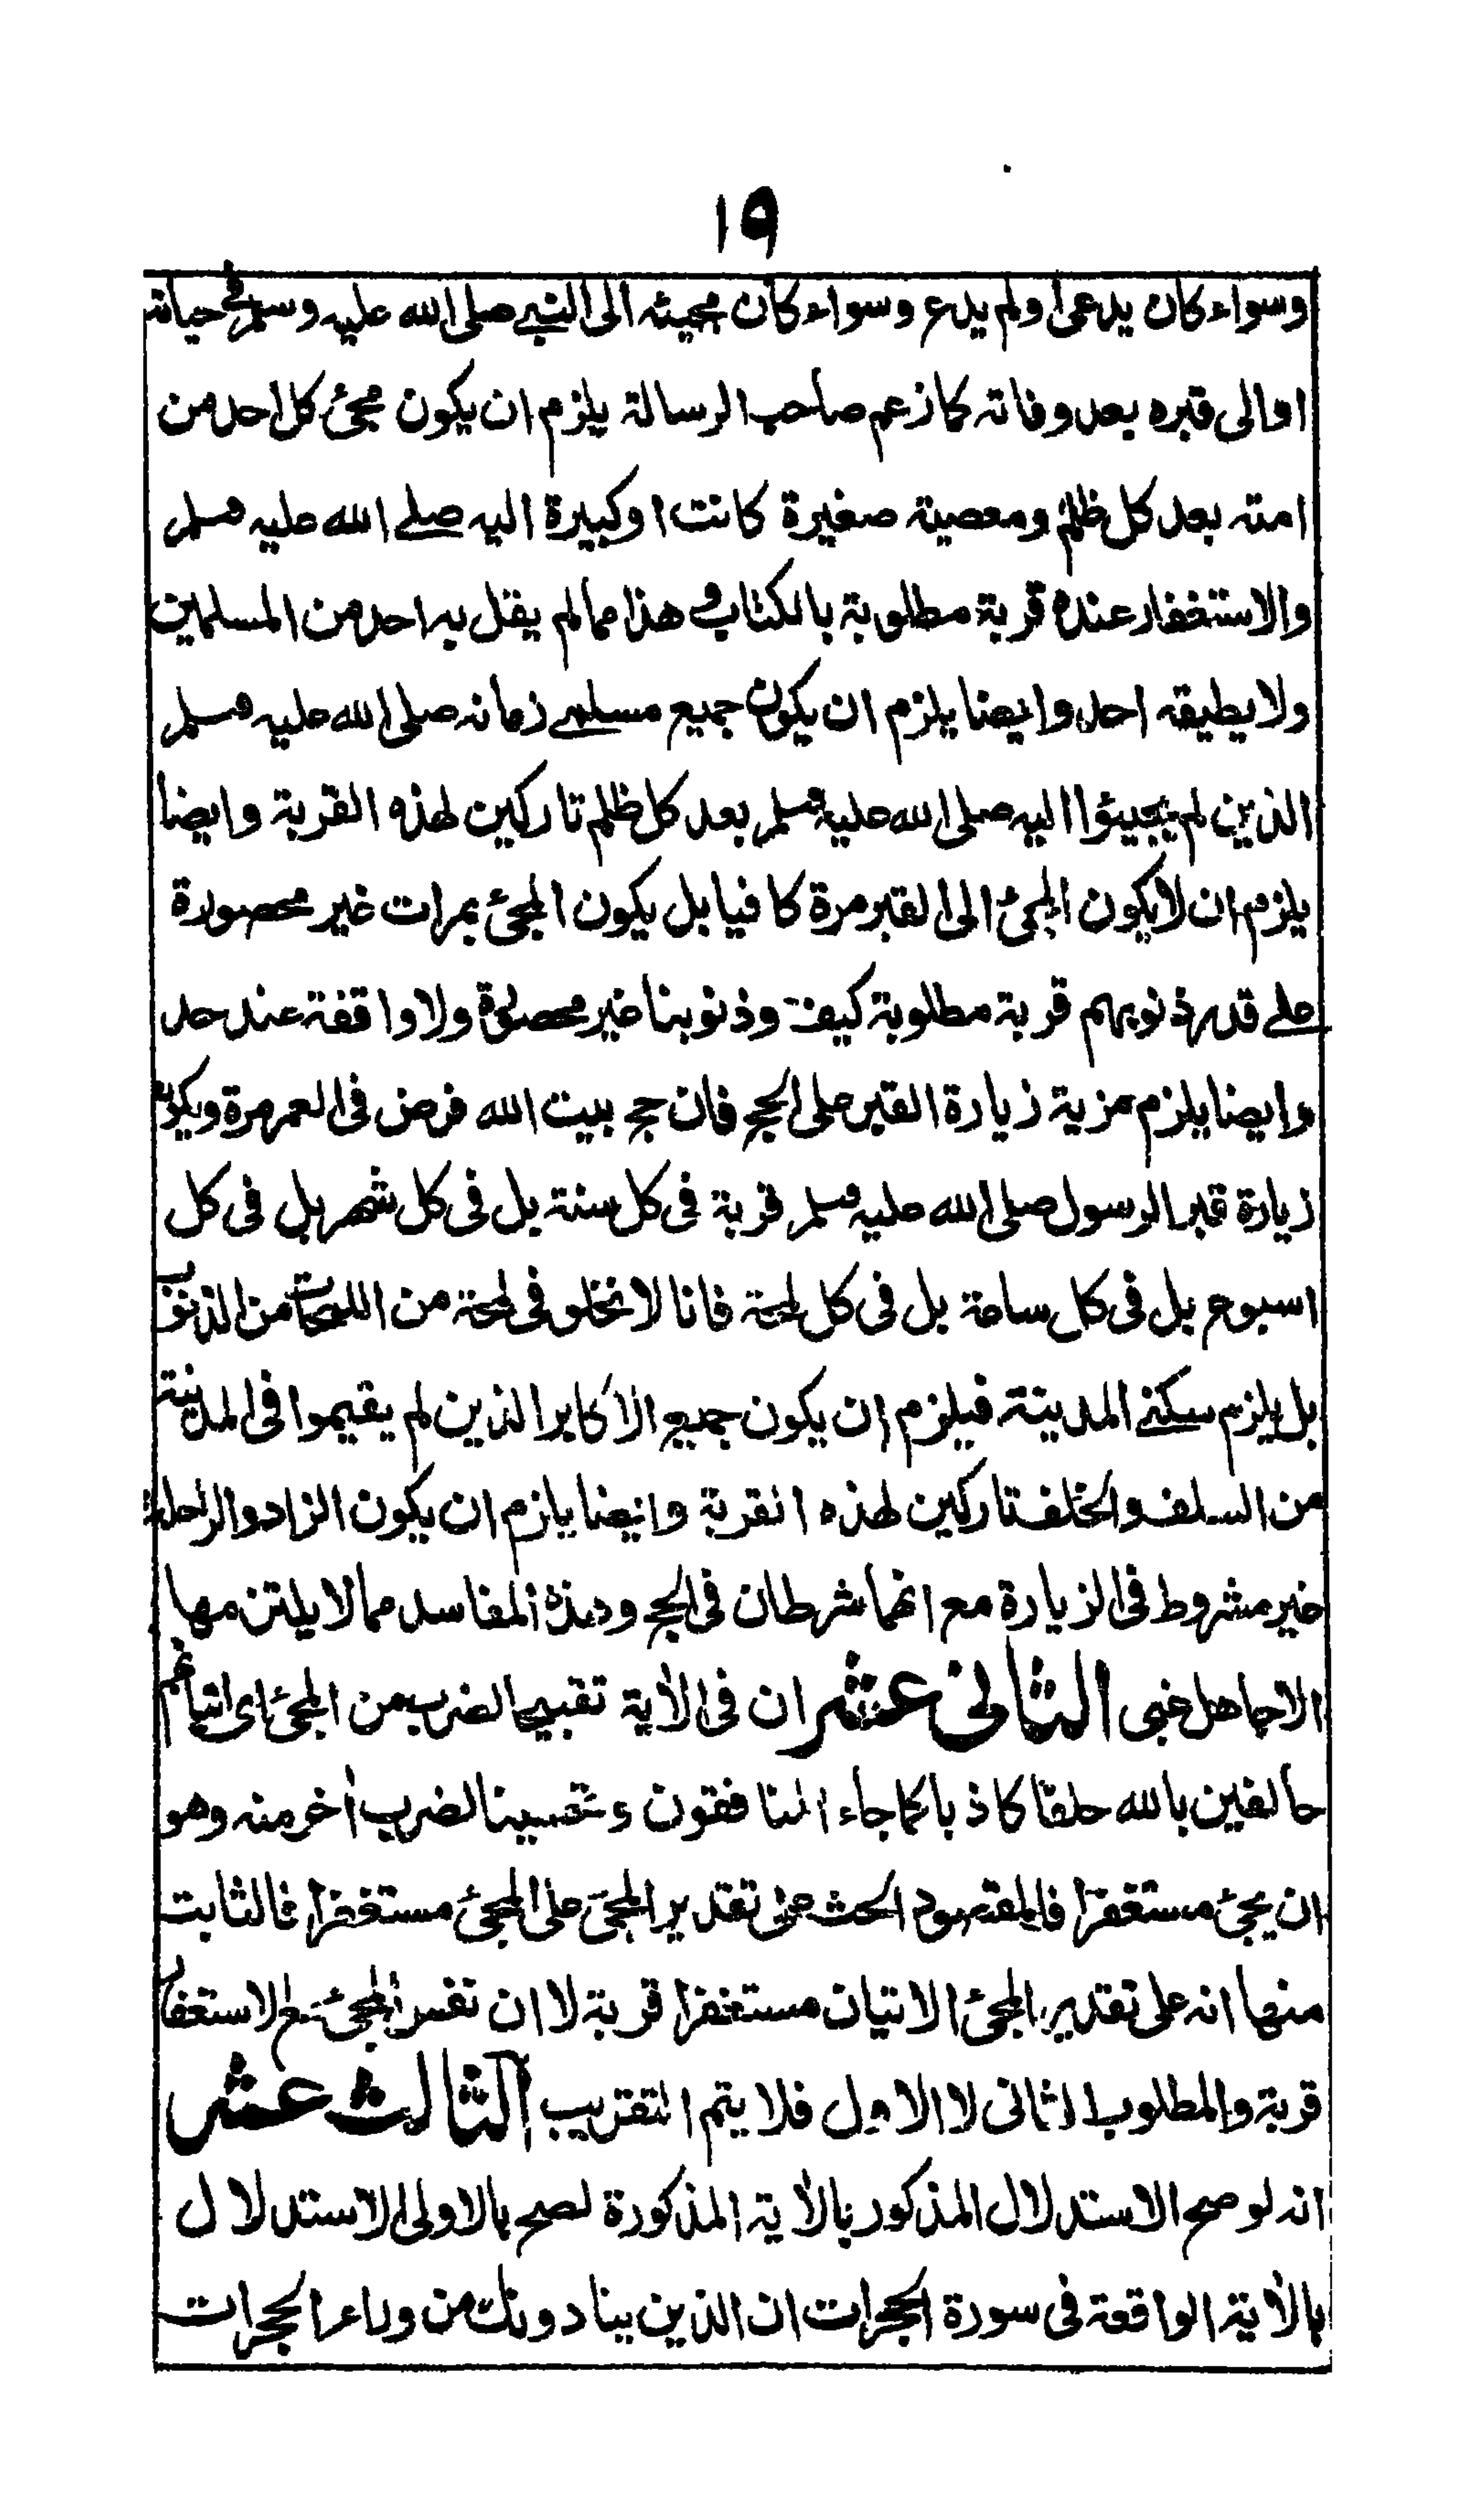 ١٩
وسواء كان يدعى او لم يدع وسواء كان مجيئه الى النبي صلى الله عليه وسلم في حياته
او الى قبره بعد وفاته كما زعم صاحب الرسالة يلزم ان يكون مجئ كل احد من
امته بعد كل ظلم ومعصية صغيرة كانت او كبيرة اليه صلى الله عليه وسلم
والاستغفار عنده قربة مطلوبة بالكتاب وهذا مما لم يقل به احد من المسلمين
ولا يطيقه احد وايضا يلزم ان يكون جميع مسلمي زمانه صلى الله عليه وسلم
الذين لم يجيئوا اليه صلى الله عليه وسلم بعد كل ظلم تاركين لهذه القربة وايضا
يلزم ان لا يكون المجئ الى القبر مرة كافيا بل يكون المجئ بمرات غير محصورة
على قدر ذنوبهم قربة مطلوبة كيف وذنوبنا غير محصورة ولا واقفة عند حد
وايضا يلزم مزية زيارة القبر على الحج فان حج بيت الله فرض في العمر مرة ويكون
زيارة قبر الرسول صلى الله عليه وسلم قربة في كل سنة بل في كل شهر بل في كل
اسبوع بل في كل ساعة بل في كل لمحة فانا لا نخلو في لمحة من اللمحات من الذنوب
بل يلزم سكنى المدينة فيلزم ان يكون جميع الاكابر الذين لم يقيموا في المدينة
من السلف والخلف تاركين لهذه القربة وايضا يلزم ان يكون الزاد والراحلة
غير مشروط في الزيارة مع انهما شرطان في الحج وهذه المفاسد مما لا يلتزمها
الا جاهل غبى الثانى عشر ان في الأية تقبيح الضرب من المجئ اى اتيانهم
حالفين بالله حلفا كاذبا كما جاء المنافقون وتحسينا لضرب أخر منه وهو
ان يجئ مستغفرا فالمقصود الحث على تقدير المجئ على المجئ مستغفرا فالثابت
منها انه على تقدير المجئ الاتيان مستغفرا قربة لا ان نفس المجئ مع الاستغفار
قربة والمطلوب الثانى لا الاول فلا يتم التقريب الثالث عشر
انه لو صح الاستدلال المذكور بالأية المذكورة لصح بالاولى الاستدلال
بالأية الواقعة فى سورة الحجرات ان الذين ينادونك من وراء الحجرات